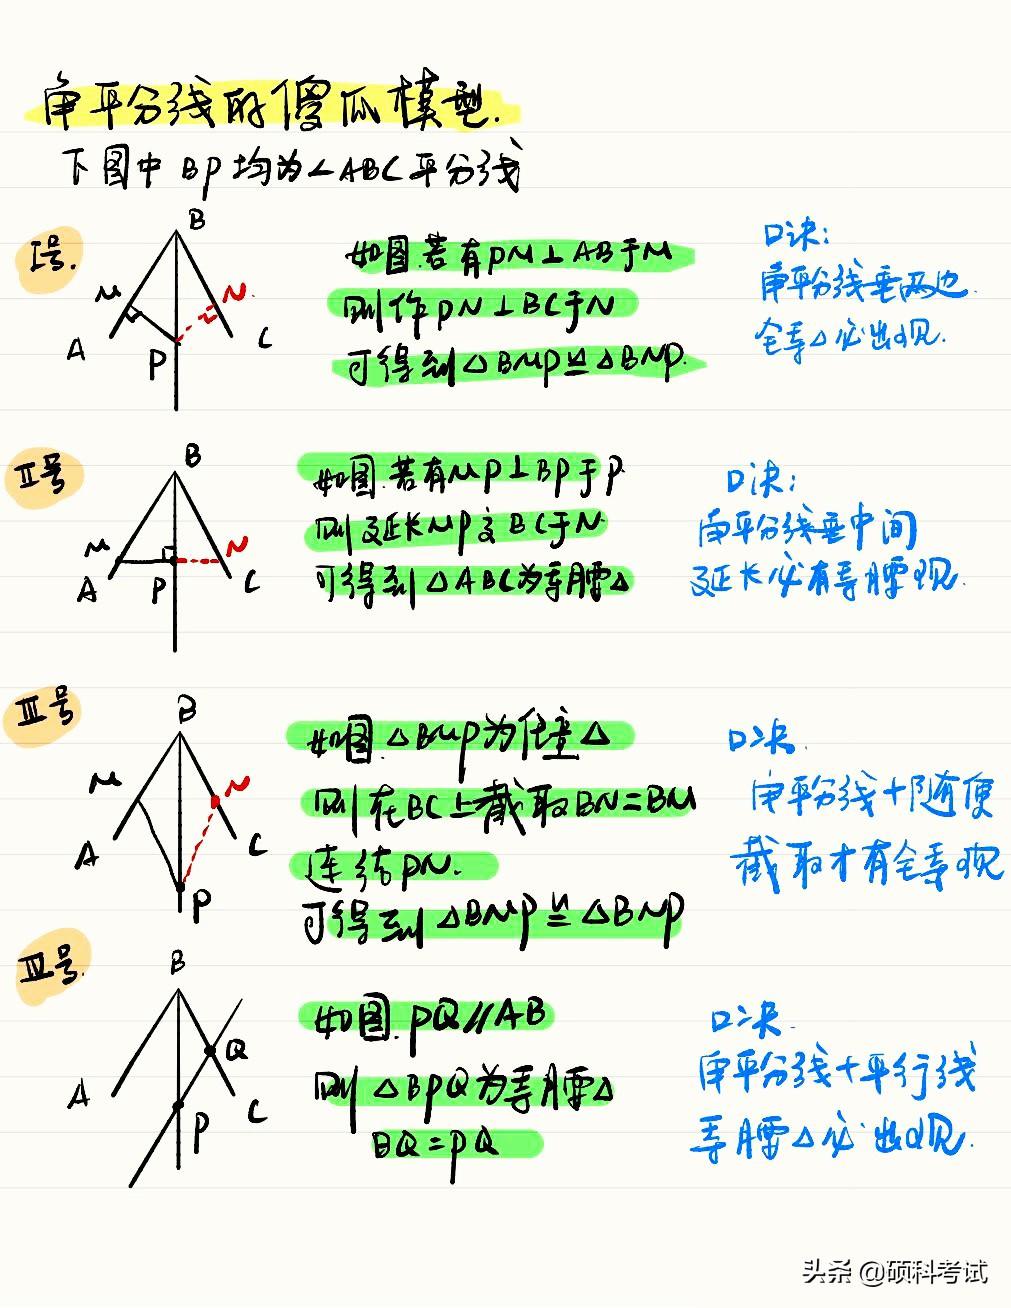 角平分线的傻瓜模型.
下图中BP均为∠ABC平分线
I号.
B
M
N
A
P
C
如图.若有PM⊥AB于M
则作PN⊥BC于N
可得到△BMP≌△BNP.
口诀:
角平分线垂两边
全等△必出现.
II号
B
M
N
A
P
C
如图.若有MP⊥BP于P
则延长MP交BC于N
可得到△ABC为等腰△
口诀:
角平分线垂中间
延长必有等腰现.
III号
B
M
N
A
C
P
如图△BMP为任意△
则在BC上截取BN=BM
连结PN.
可得到△BMP≌△BNP
口诀.
角平分线+随便
截取才有全等现
III号.
B
Q
A
C
P
如图.PQ//AB
则△BPQ为等腰△
BQ=PQ
口诀.
角平分线+平行线
等腰△必出现.
头条 @硕科考试